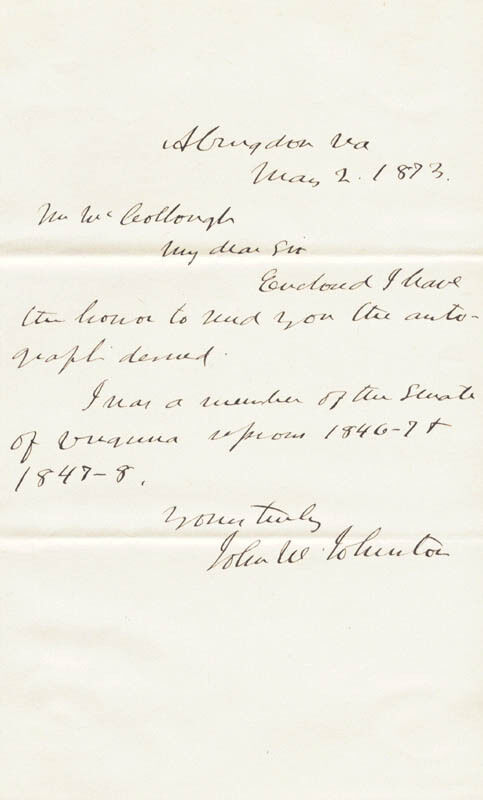 Abingdon Va
May 2. 1873.
Mr McCollough
My dear Sir
Enclosed I have
the honor to send you the auto-
graph desired.
I was a member of the Senate
of Virginia sessions 1846-7 &
1847-8.
Yours truly
John W. Johnston